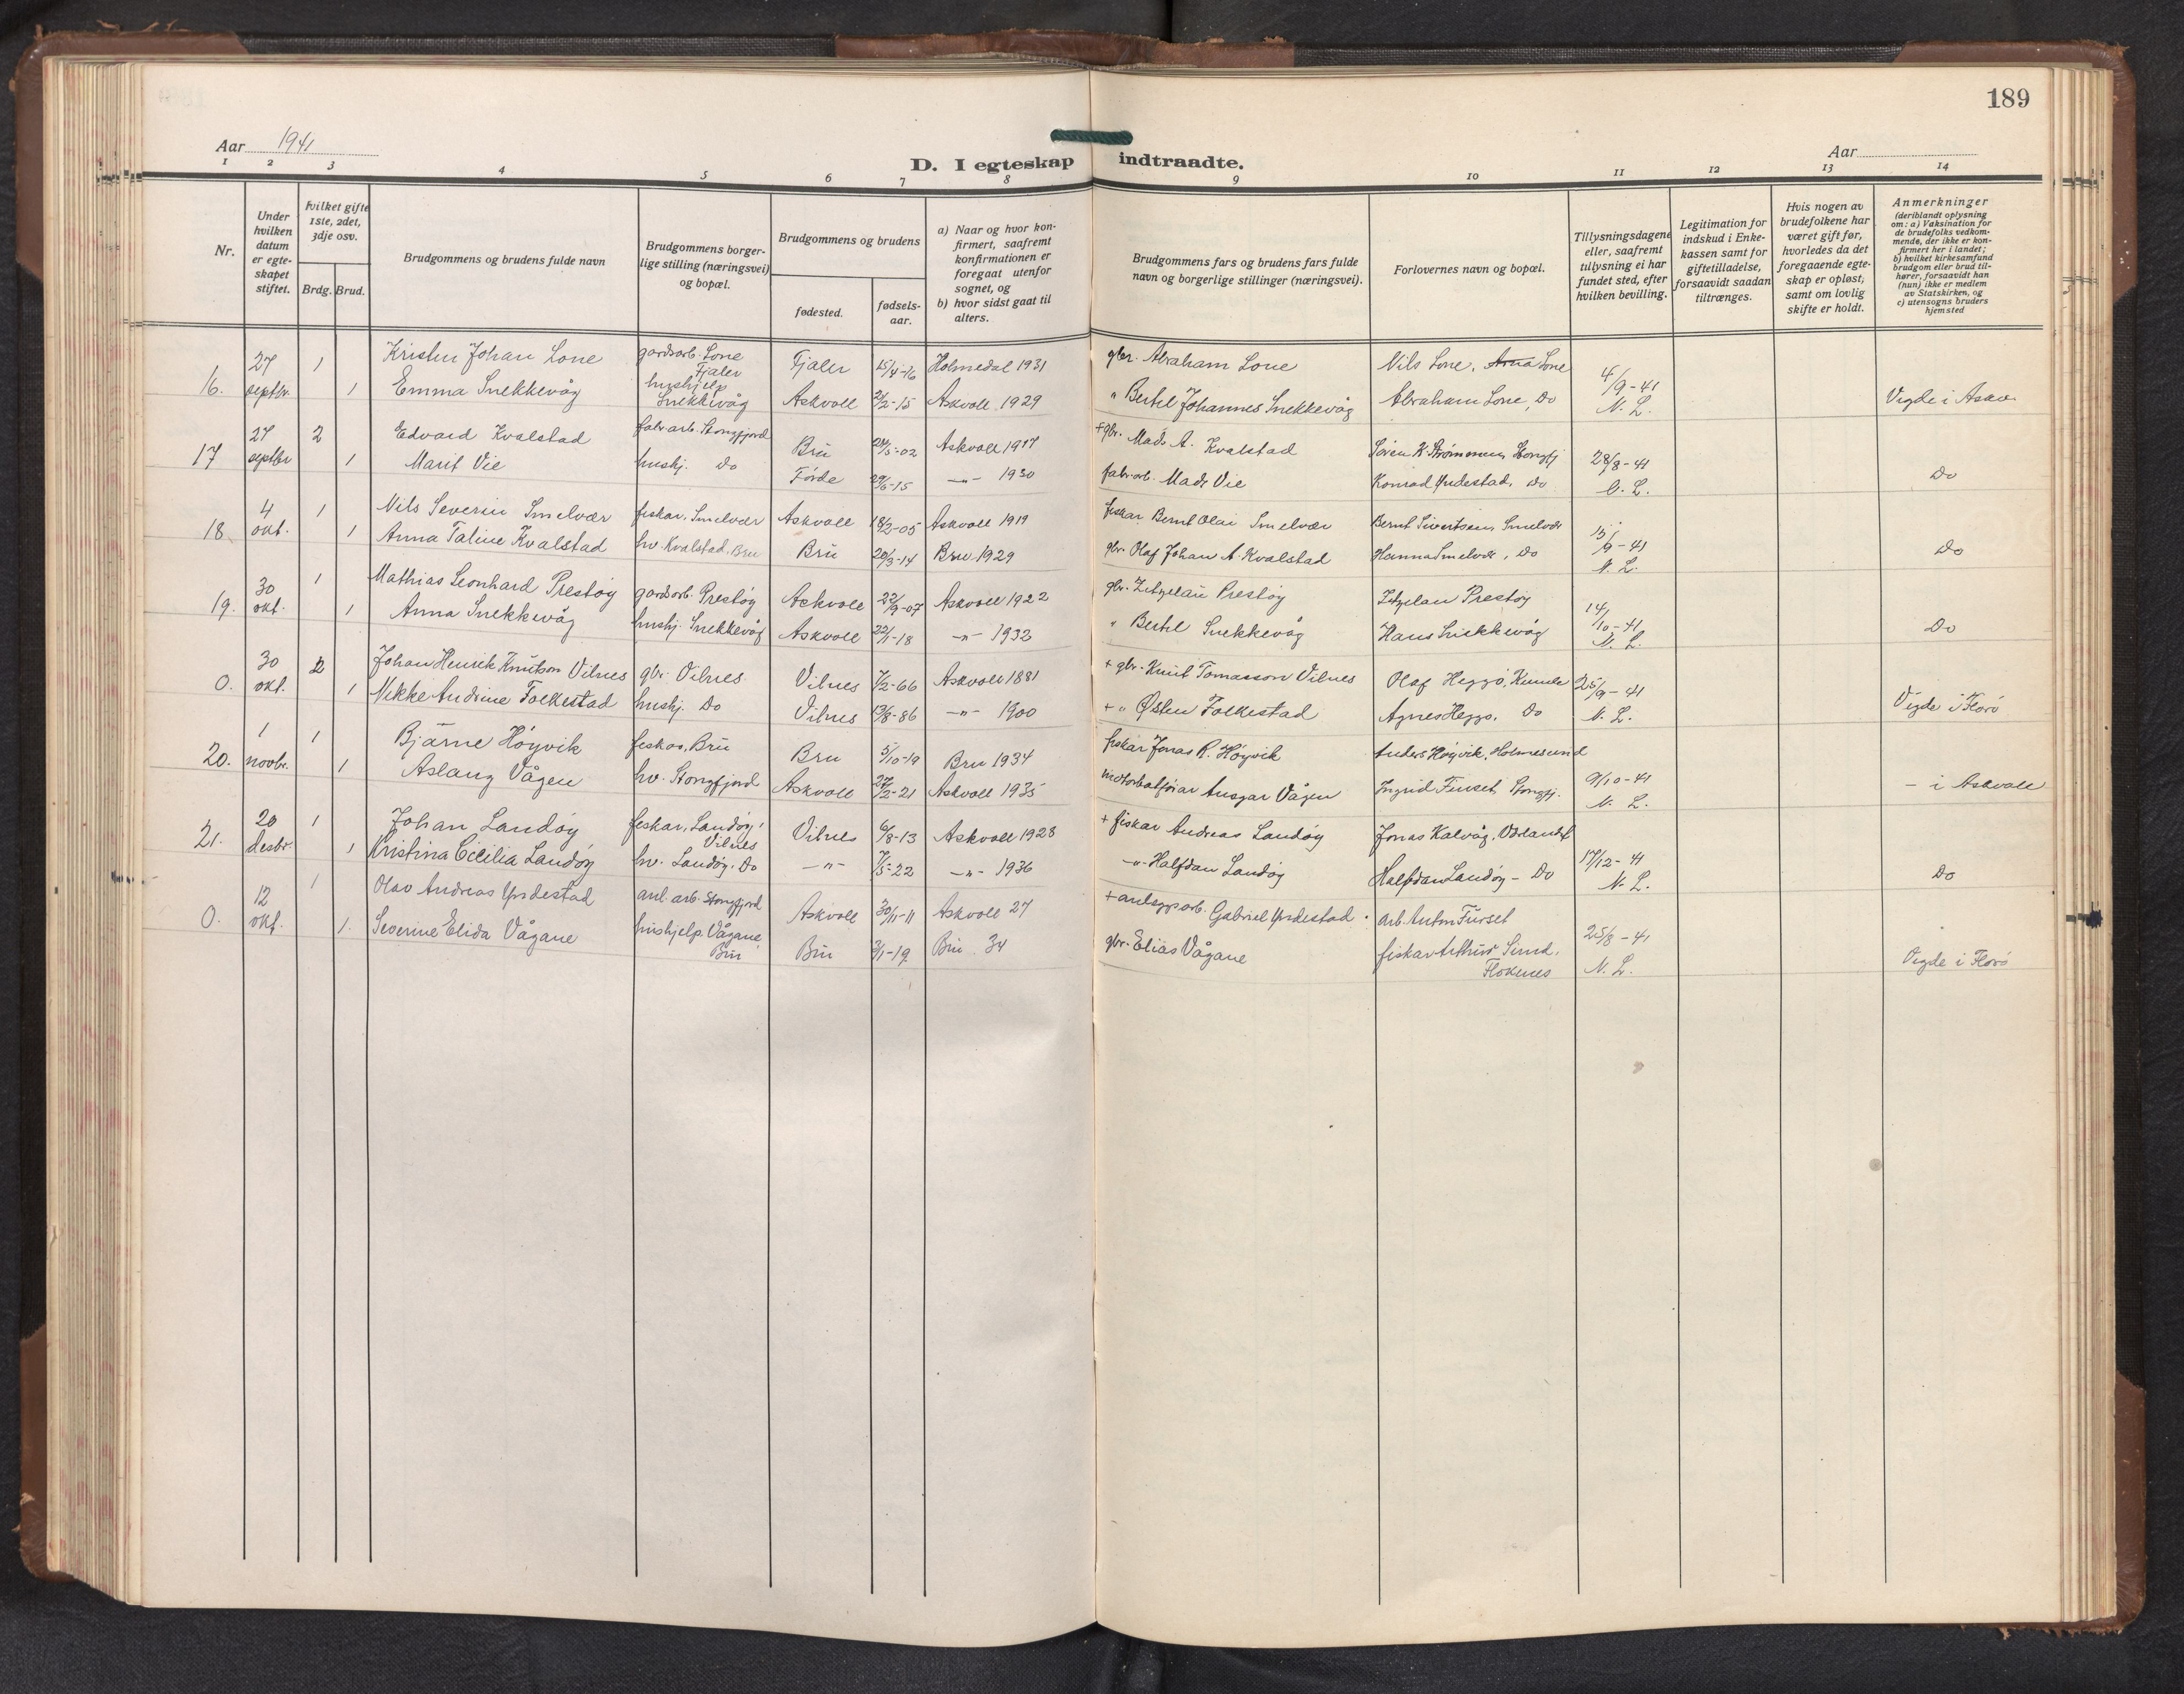 189
Aar 1941
D. I egteskap indtraadte.
Aar
1 2 3 4 5 6 7 8 9 10 11 12 13 14
Nr.
Under hvilken datum er egteskapet stiftet.
Hvilket gifte 1ste, 2det, 3dje osv.
Brdg. Brud.
Brudgommens og brudens fulde navn
Brudgommens borgerlige stilling (næringsvei) og bopæl.
Brudgommens og brudens
fødested.
fødselsaar.
a) Naar og hvor konfirmert, saafremt konfirmationen er foregaat utenfor sognet, og
b) hvor sidst gaat til alters.
Brudgommens fars og brudens fars fulde navn og borgerlige stillinger (næringsvei).
Forlovernes navn og bopæl.
Tillysningsdagene eller, saafremt tillysning ei har fundet sted, efter hvilken bevilling.
Legitimation for indskud i Enkekassen samt for giftetilladelse, forsaavidt saadan tiltrænges.
Hvis nogen av brudefolkene har været gift før, hvorledes da det foregaaende egteskap er opløst, samt om lovlig skifte er holdt.
Anmerkninger (deriblandt oplysning om: a) Vaksination for de brudefolks vedkommende, der ikke er konfirmert her i landet; b) hvilket kirkesamfund brudgom eller brud tilhører, forsaavidt han (hun) ikke er medlem av Statskirken, og c) utensogns bruders hjemsted
16. 27 septbr. 1 Kristen Johan Lone gardsarb. Lone Fjaler Fjaler 15/4-16 Holmedal 1931 gbr. Abraham Lone Nils Lone, Arna Lone 4/9-41
1 Emma Snekkevåg hushjelp Snekkevåg Askvoll 2/2-15 Askvoll 1929 " Bertel Johannes Snekkevåg Abraham Lone, Do N. L. Vigde i Askv.
17 27 septbr 2 Edvard Kvalstad fabr.arb. Stongfjord Bru 24/5-02 Askvoll 1917 + gbr. Mads A. Kvalstad Søren K. Strømmen, Stongfj 28/8-41
1 Marit Vie hushj. Do Førde 29/6-15 -"- 1930 fabr.arb. Mads Vie Konrad Yndestad, Do L. Do
18. 4 okt. 1 Nils Severin Smelvær fiskar, Smelvær Askvoll 18/2-05 Askvoll 1919 fiskar Bernt Olai Smelvær Bernt Sivertsen, Smelvær 15/9-41
1 Anna Taline Kvalstad hv. Kvalstad, Bru Bru 20/3-14 Bru 1929 gbr. Olaf Johan A. Kvalstad Hanna Smelvær, Do N. L. Do
19. 30 okt. 1 Mathias Leonhard Prestøy gardsarb. Prestøy Askvoll 22/9-07 Askvoll 1922 gbr. Prestøy Prestøy 14/10-41
1 Anna Snekkevåg hushj. Snekkevåg Askvoll 22/1-18 -"- 1932 " Bertel Snekkevåg Hans Snekkevåg N. L. Do
0. 30 okt. 2 Johan Henrik Knutson Vilnes gbr. Vilnes Vilnes 7/2-66 Askvoll 1881 + gbr. Knut Tomasson Vilnes Olaf Heggø, 25/9-41
1 Nikke Andrine Folkestad hushj. Do Vilnes 13/8-86 -"- 1900 + " Østen Folkestad Agnes Heggø, Do N. L. Vigde i Florø
20. 1 novbr. 1 Bjarne Høyvik fiskar, Bru Bru 5/10-19 Bru 1934 fiskar Jonas R. Høyvik Anders Høyvik, Holmesund
1 Aslaug Vågen hv. Stongfjord Askvoll 27/2-21 Askvoll 1935 motorbåtførar Ansgar Vågen Ingrid Furset, Stongfj. 9/10-41 N. L. - i Askvoll
21. 20 desbr. 1 Johan Landøy fiskar, Landøy, Vilnes Vilnes 6/8-13 Askvoll 1928 + fiskar Andreas Landøy Jonas Kalvåg,
1 Kristina Cicilia Landøy hv. Landøy, Do -"- 7/5-22 -"- 1936 -"- Halfdan Landøy Halfdan Landøy - Do 17/12-41 N. L. Do
0. 12 okt. 1 Olav Andreas Yndestad anl. arb. Stongfjord Askvoll 30/11-11 Askvoll 27 + anleggsarb. Gabriel Yndestad arb. Anton Furset
1. Severine Elida Vågane hushjelp. Vågane, Bru Bru 3/1-19 Bru 34 gbr. Elias Vågane fiskar Arthur Sund, Flokenes 25/8-41 N. L. Vigde i Florø